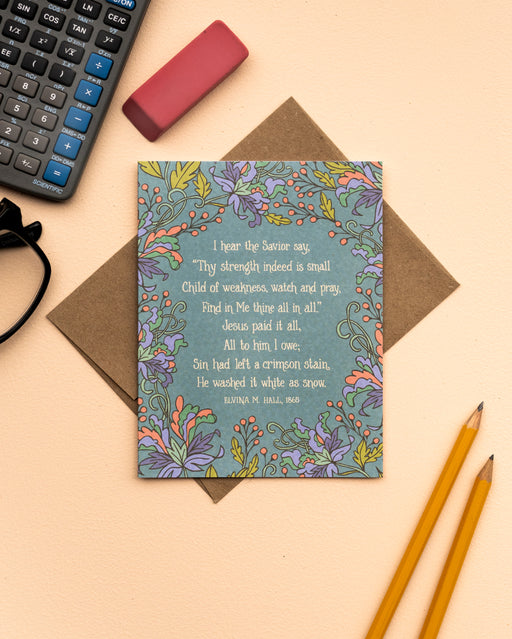 SION
SIN
COS
TAN
LN
CE/C
FRQ
1/x
√x
yx
EE
(
)
÷
RCP
SCI
ENG
8
9
×
5
6
−
2
3
+
0
.
+/−
=
SCIENTIFIC
I hear the Savior say,
“Thy strength indeed is small
Child of weakness, watch and pray,
Find in Me thine all in all.”
Jesus paid it all,
All to him I owe;
Sin had left a crimson stain,
He washed it white as snow.
ELVINA M. HALL, 1865